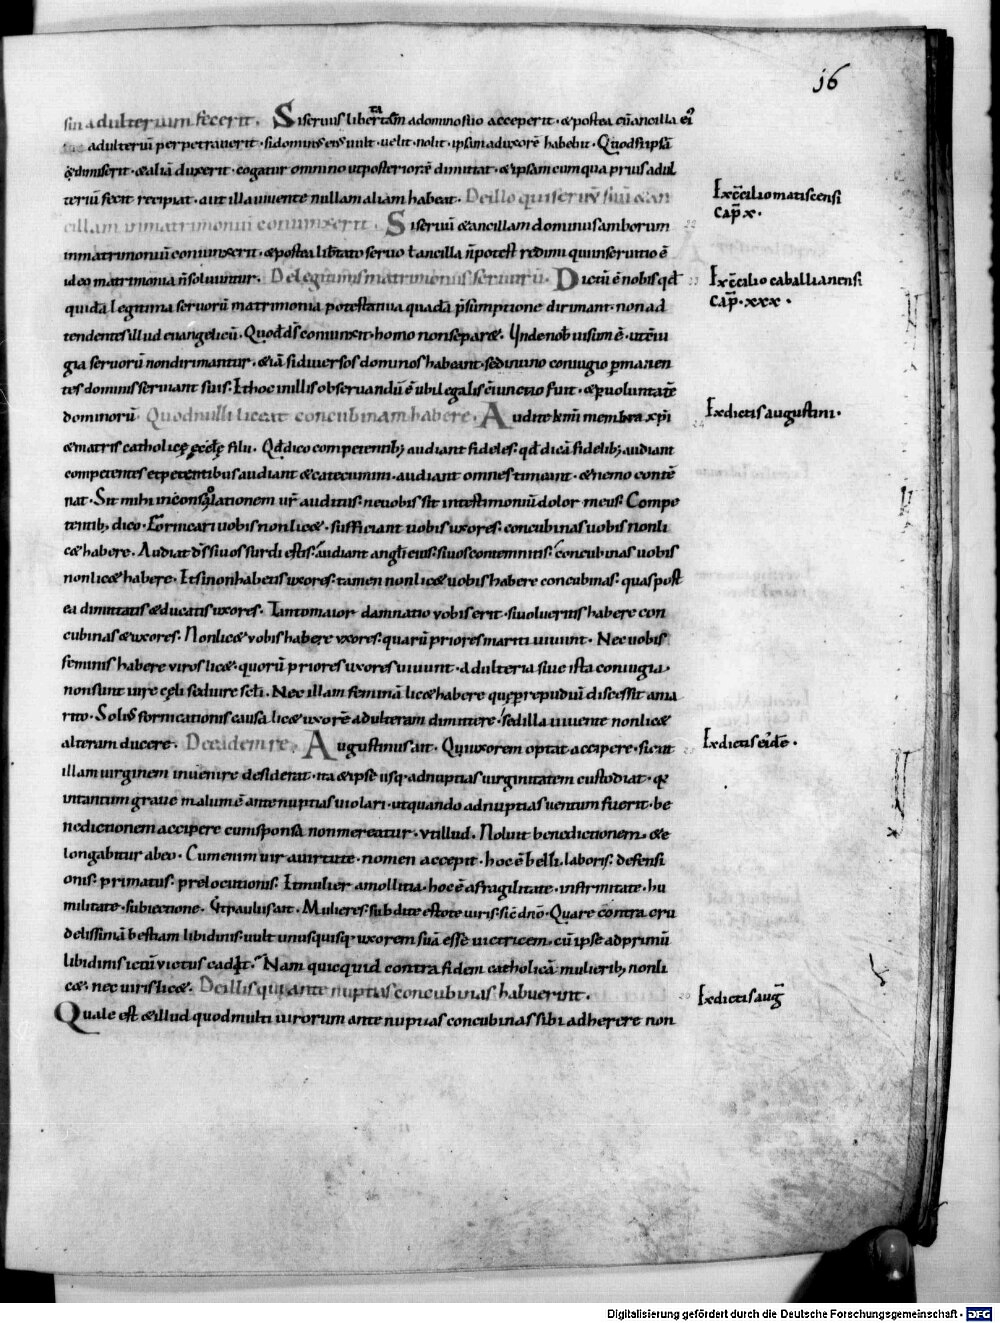 16
sin adulterium fecerit. Si seruus libertatẽ a domno suo acceperit · & postea cũ ancilla ei'
adulteriũ perpetrauerit · si dominus ei' uult · uelit · nolit · ipsam ad uxorẽ habebit · Quod si ipsã
dimiserit · & aliã duxerit · cogatur omnino ut posteriorẽ dimittat · & ipsam cum qua prius adul
teriũ fecit recipiat · aut illa uiuente nullam aliam habeat. De illo qui seruũ suũ & an
Ex c̃cilio matiscensi
cap̃ x.
cillam in matrimoniũ coniunxerit. Si seruũ & ancillam dominus amborum
in matrimoniũ coniunxerit · & postea liberato seruo t ancilla ñ potest redimi qui in seruitio ẽ
ideo matrimonia ñ soluuntur. De legitimis matrimoniis seruorũ. Dictũ ẽ nobis qđ
Ex c̃cilio caballianensi
cap̃ · xxx ·
quidã legitima seruorũ matrimonia potestatiua quadã p̃sumptione dirimant · non ad
tendentes illud euangelicũ. Quod dš coniunxit · homo non separ&. Unde nob uisum ẽ · ut ciu
gia seruorũ non dirimantur · & iã si diuersos dominos habeant · sed in uno coniugio ꝑmanen
tes dominis seruiant suis. Et hoc in illis obseruandũ ẽ ubi legalis c̃iunctio fuit · & ꝑ uoluntatẽ
dominorũ Quod nulli liceat concubinam habere. Audite kmĩ membra xp̃i
Ex dictis augustini ·
& matris catholicę ęcclę filii · Qđ dico competentib; audiant fideles : qđ dicã fidelib; audiant
competentes et petentibus audiant & catecumini · audiant omnes timeant · & nemo contẽ
nat · Sit mihi in consolationem ur̃ auditus : ne uobis sit in testimoniũ dolor meus : Compe
tentib; dico · Fornicari uobis non lic& · sufficiant uobis uxores : concubinas uobis non li
c& habere. Audiat dš si uos surdi estis : audiant angli eius : si uos contemnitis : concubinas uobis
non lic& habere · Et si non habetis uxores : tamen non lic& uobis habere concubinas : quas post
ea dimittatis & ducatis uxores. Tanto maior damnatio vobis erit · si uolueritis habere con
cubinas & uxores : Non lic& vobis habere vxores : quarũ priores mariti uiuunt · Nec uobis
feminis habere viros lic& · quorũ priores uxores uiuunt · adulteria siue ista coniugia ·
non sunt iure cęli sed iure scłi · Nec illam feminã lic& habere quę ꝑ repudiũ discessit a ma
rito · Soli' fornicationis causa lic& uxorẽ adulteram dimittere · sed illa uiuente non lic&
alteram ducere. De eadem re. Augustinus ait. Qui uxorem optat accipere · sicut
Ex dictis eid̃e ·
illam uirginem inuenire desiderat · ita & ipse usq; ad nuptias uirginitatem custodiat · q̃
in tantum graue malum ẽ ante nuptias uiolari · ut quando ad nuptias uentum fuerit · be
nedictionem accipere cum sponsa non mereatur · vt illud. Noluit benedictionem · & e
longabitur ab eo · Cum enim uir a uirtute · nomen accepit · hoc ẽ belli, laboris : defensi
onis : primatus : prelocutionis : Et mulier a mollitia · hoc ẽ a fragilitate · infirmitate · hu
militate · subiectione · Et paulus ait. Mulieres : subdite estote uiris : sic̃ dn̄o · Quare contra cru
delissimã bestiam libidinis : uult unusquisq; uxorem suã esse uictricem · cũ ipse ad primũ
libidinis ictũ victus cadat. Nam quicquid contra fidem catholicã mulierib; non li
c& · nec uiris lic&. De illis qui ante nuptias concubinas habuerint.
Ex dictis aug̃
Quale est & illud quod multi uirorum ante nuptias concubinas sibi adherere non
Digitalisierung gefördert durch die Deutsche Forschungsgemeinschaft - DFG